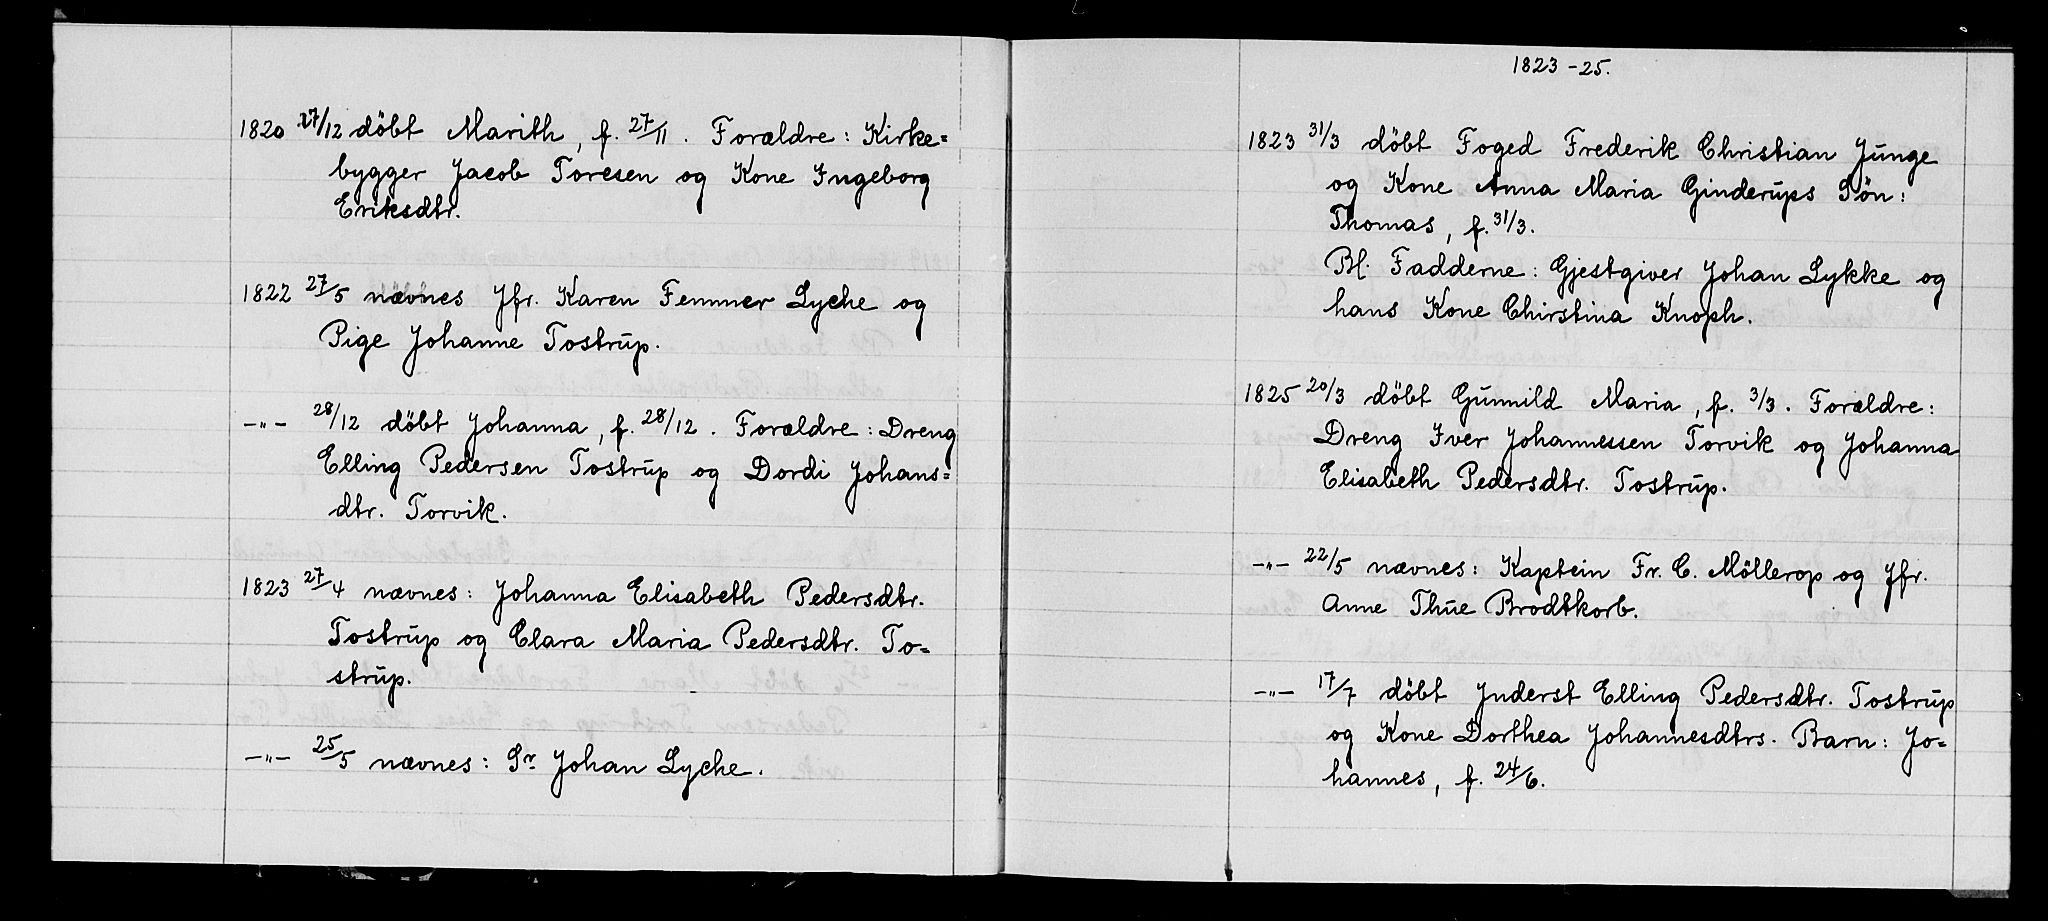 1820 27/12 döbt Marith, f. 27/11. Forældre: Kirke=
bygger Jacob Toresen og Kone Ingeborg
Eriksdtr.
1822 27/5 nævnes Jfr. Karen Femmer Lyche og
Pige Johanne Tostrup.
—"— 28/12 döbt Johanna, f. 28/12. Forældre: Dreng
Elling Pedersen Tostrup og Dordi Johans=
dtr. Torvik.
1823 27/4 nævnes: Johanna Elisabeth Pedersdtr.
Tostrup og Clara Maria Pedersdtr. To=
strup.
—"— 25/5 nævnes: Sr Johan Lyche.
1823-25.
1823 31/3 döbt Foged Frederik Christian Junge
og Kone Anna Maria Ginderups Sön:
Thomas, f. 31/3.
Bl. Fadderne: Gjestgiver Johan Lykke og
hans Kone Chirstina Knoph.
1825 20/3 döbt Gunnild Maria, f. 3/3. Forældre:
Dreng Iver Johannessen Torvik og Johanna
Elisabeth Pedersdtr. Tostrup.
—"— 22/5 nævnes: Kaptein Fr. C. Möllerop og Jfr.
Anne Thue Brodtkorb.
—"— 17/7 döbt Inderst Elling Pedersdtr. Tostrup
og Kone Dorthea Johannesdtrs. Barn: Jo=
hannes, f. 24/6.